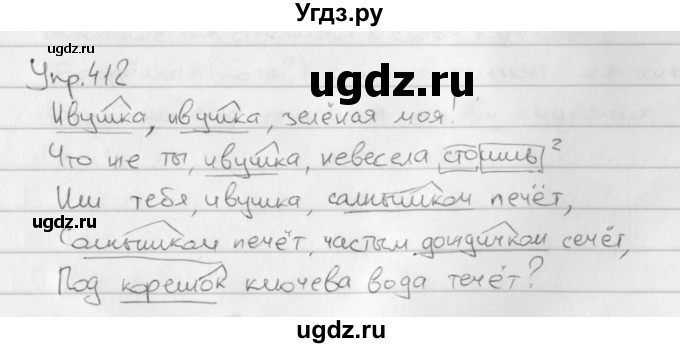 Угдз.ру
ugdz.ru
ugdz.ru
ugdz.ru
Упр. 412
Ивушка, ивушка, зелёная моя!
Что же ты, ивушка, невесела стоишь²
ugdz.ru
Или тебя, ивушка, солнышком печёт,
Солнышком печёт, частым дождичком сечёт,
Под корешок ключева вода течёт?
ugdz.ru
ugdz.ru